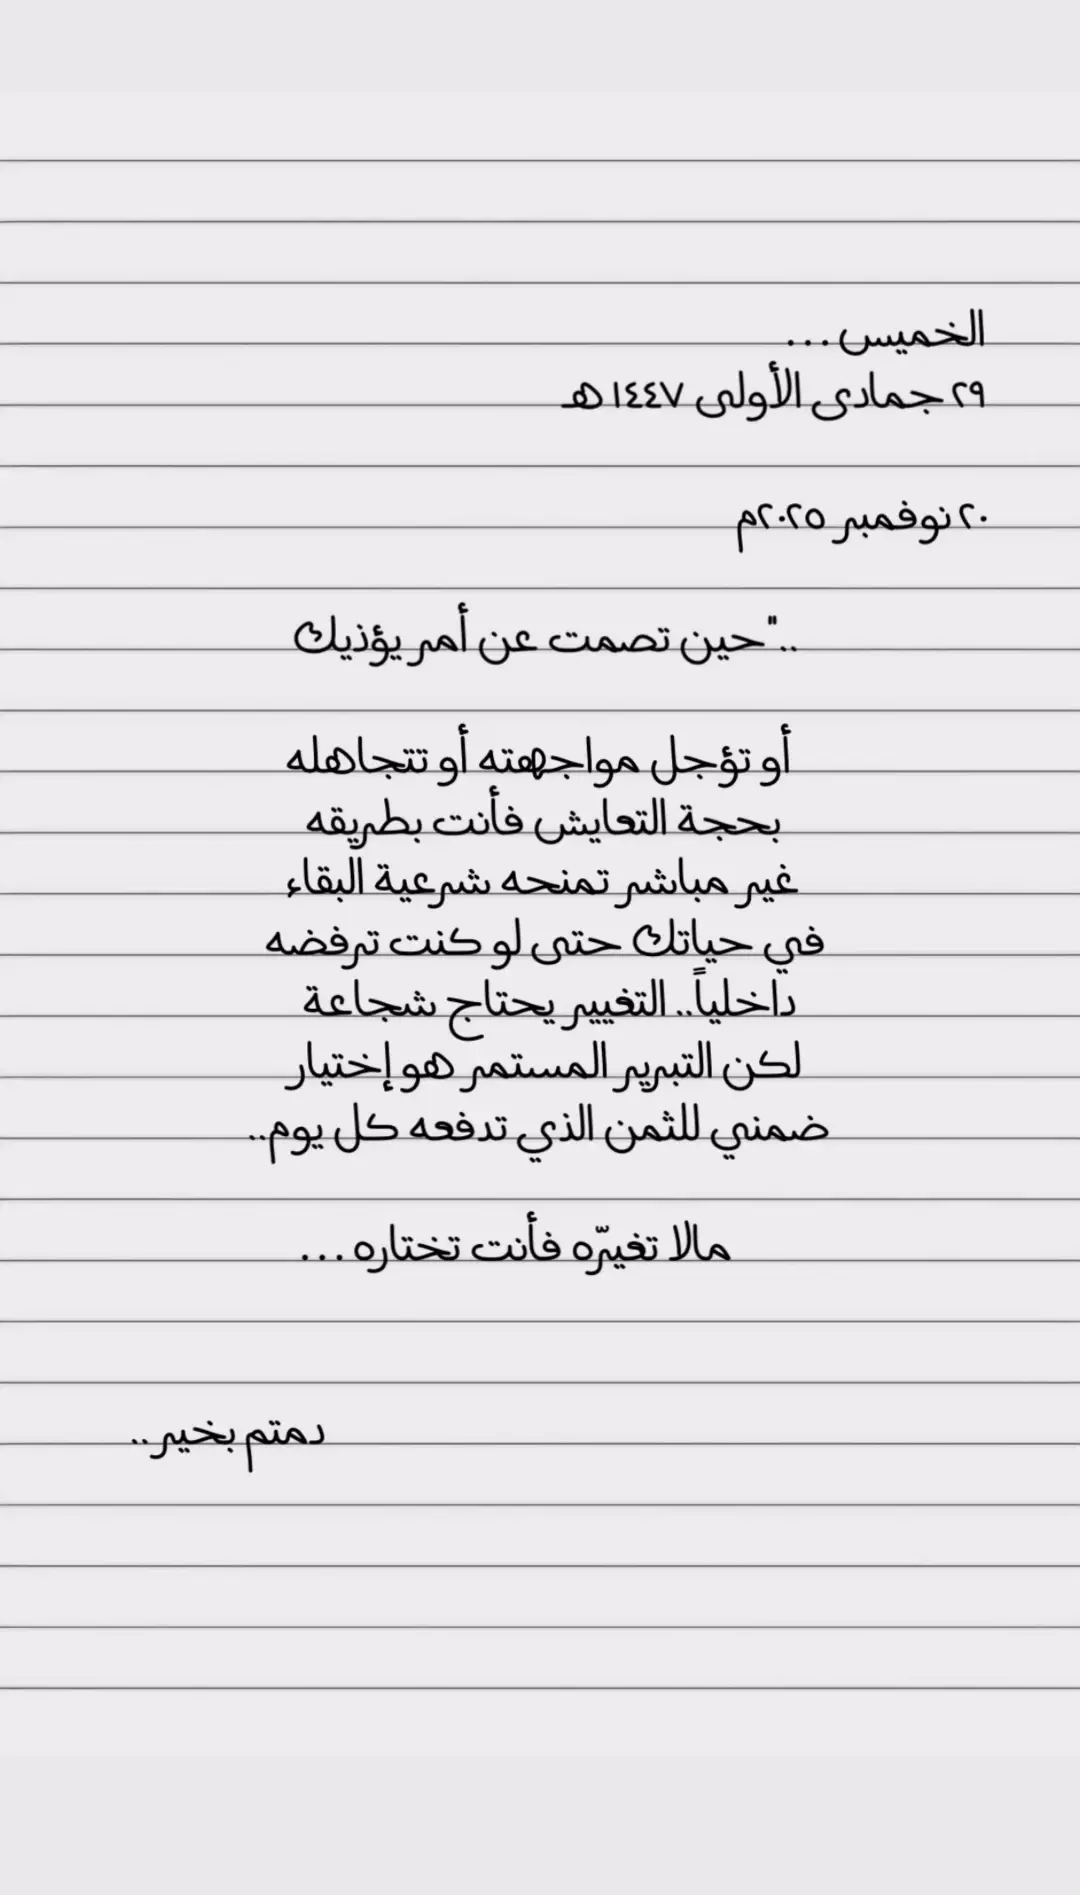 الخميس...
٢٩ جمادى الأولى ١٤٤٧ هـ
٢٠ نوفمبر ٢٠٢٥م
.."حين تصمت عن أمر يؤذيك
أو تؤجل مواجهته أو تتجاهله
بحجة التعايش فأنت بطريقه
غير مباشر تمنحه شرعية البقاء
في حياتك حتى لو كنت ترفضه
داخلياً.. التغيير يحتاج شجاعة
لكن التبرير المستمر هو إختيار
ضمني للثمن الذي تدفعه كل يوم..
مالا تغيّره فأنت تختاره...
دمتم بخير..